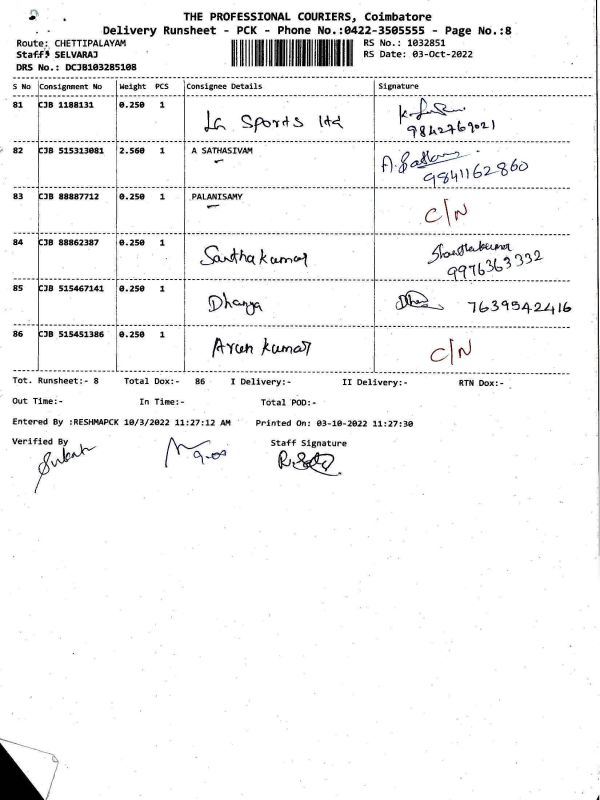 THE PROFESSIONAL COURIERS, Coimbatore
Delivery Runsheet - PCK - Phone No.:0422-3505555 - Page No.:8
Route: CHETTIPALAYAM RS No.: 1032851
Staff: SELVARAJ RS Date: 03-Oct-2022
DRS No.: DCJB103285108
S No Consignment No Weight PCS Consignee Details Signature
81 CJB 1188131 0.250 1 LG Sports ltd
9842769021
82 CJB 515313081 2.560 1 A SATHASIVAM
9841162860
83 CJB 88887712 0.250 1 PALANISAMY C/N
84 CJB 88862387 0.250 1 Santhakumar Shanthakumar
9976363332
85 CJB 515467141 0.250 1 Dhanya 7639542416
86 CJB 515451386 0.250 1 Arun kumar C/N
Tot. Runsheet:- 8 Total Dox:- 86 I Delivery:- II Delivery:- RTN Dox:-
Out Time:- In Time:- Total POD:-
Entered By :RESHMAPCK 10/3/2022 11:27:12 AM Printed On: 03-10-2022 11:27:30
Verified By Staff Signature